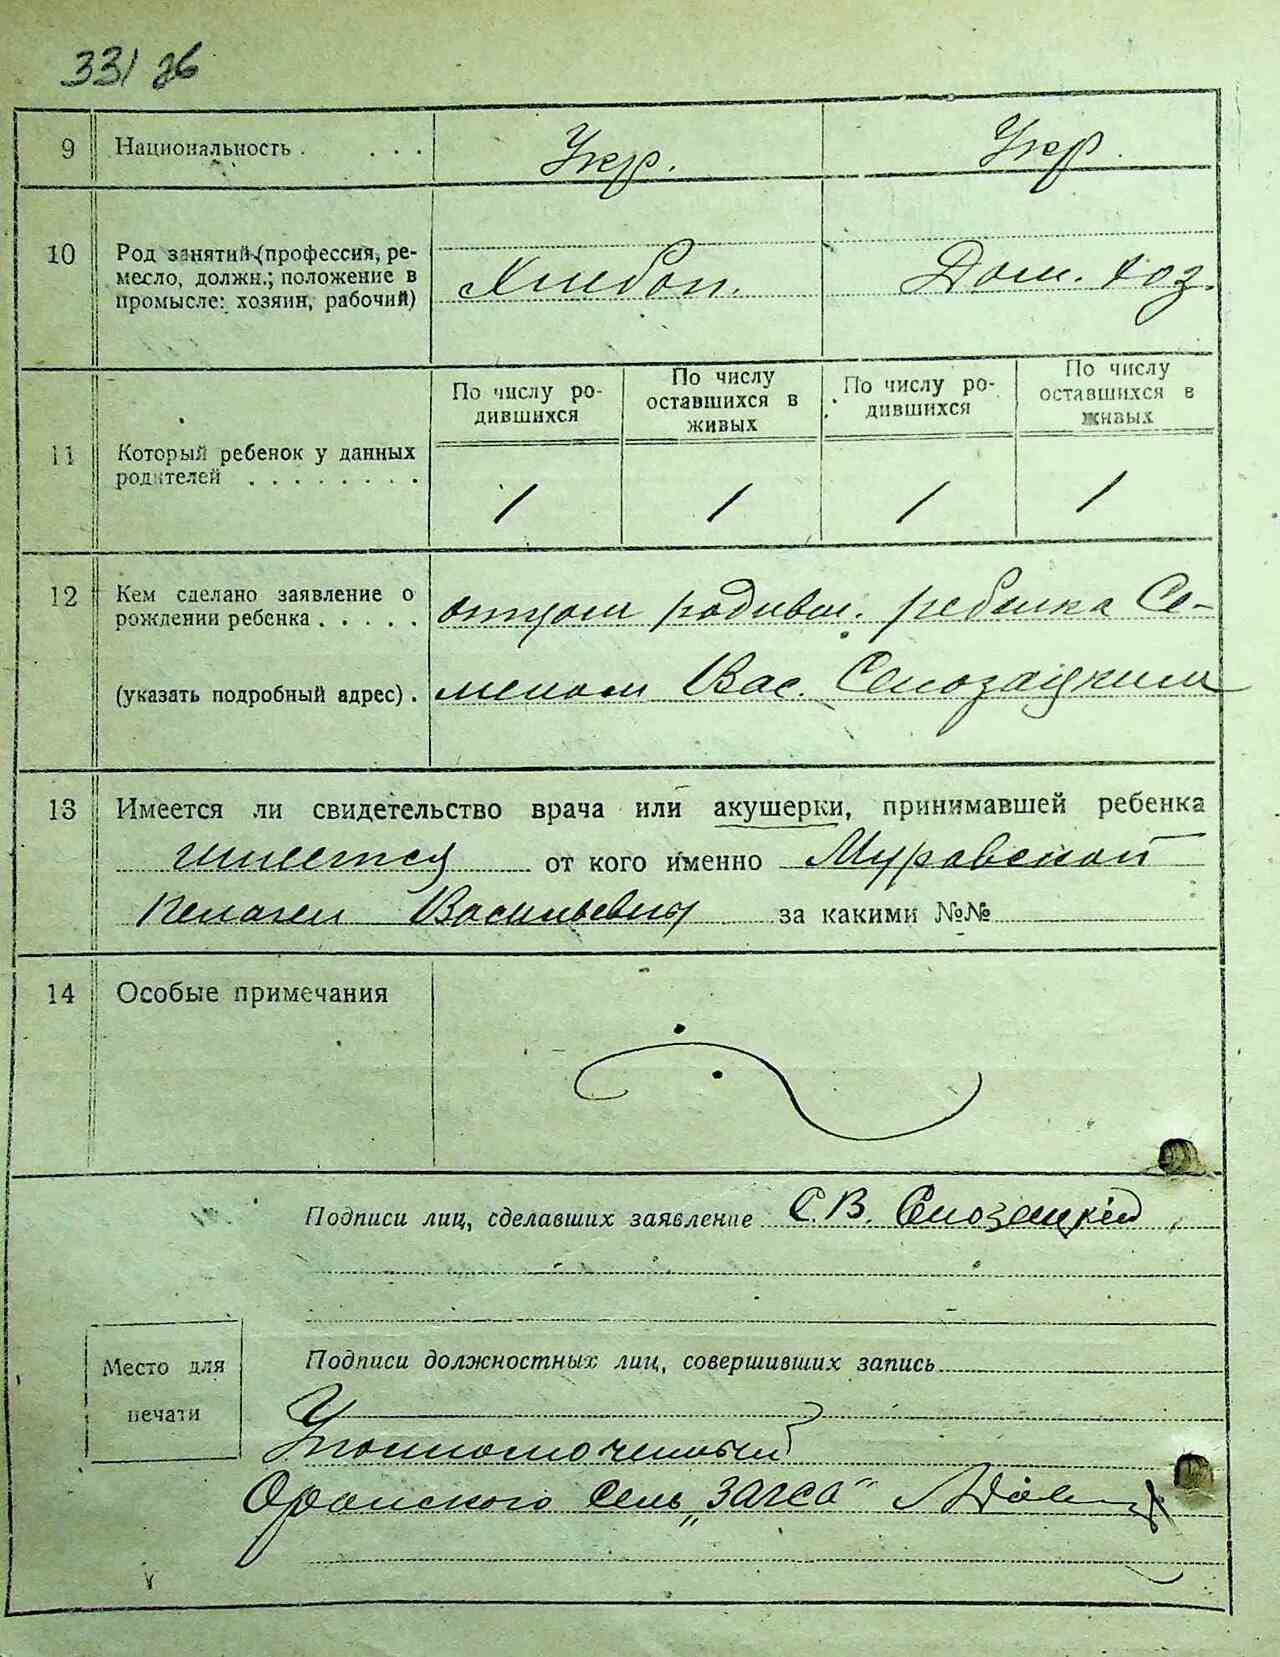 33/зв
9 Национальность . . . . Укр. Укр.
10 Род занятий (профессия, ре-
месло, должн.; положение в
промысле: хозяин, рабочий) Хлебоп. Дом. хоз.
11 Который ребенок у данных
родителей . . . . . . . .
По числу ро-
дившихся
По числу
оставшихся в
живых
По числу ро-
дившихся
По числу
оставшихся в
живых
1 1 1 1
12 Кем сделано заявление о
рождении ребенка . . . . . отцом родивш. ребенка Се-
(указать подробный адрес) . меном Вас. Слозацким
13 Имеется ли свидетельство врача или акушерки, принимавшей ребенка
имеется от кого именно Муравской
Пелагеи Васильевны за какими №№
14 Особые примечания
Подписи лиц, сделавших заявление С. В. Слозацкій
Место для
печати
Подписи должностных лиц, совершивших запись
Уполномоченный
Оранского сель „ЗАГСа“